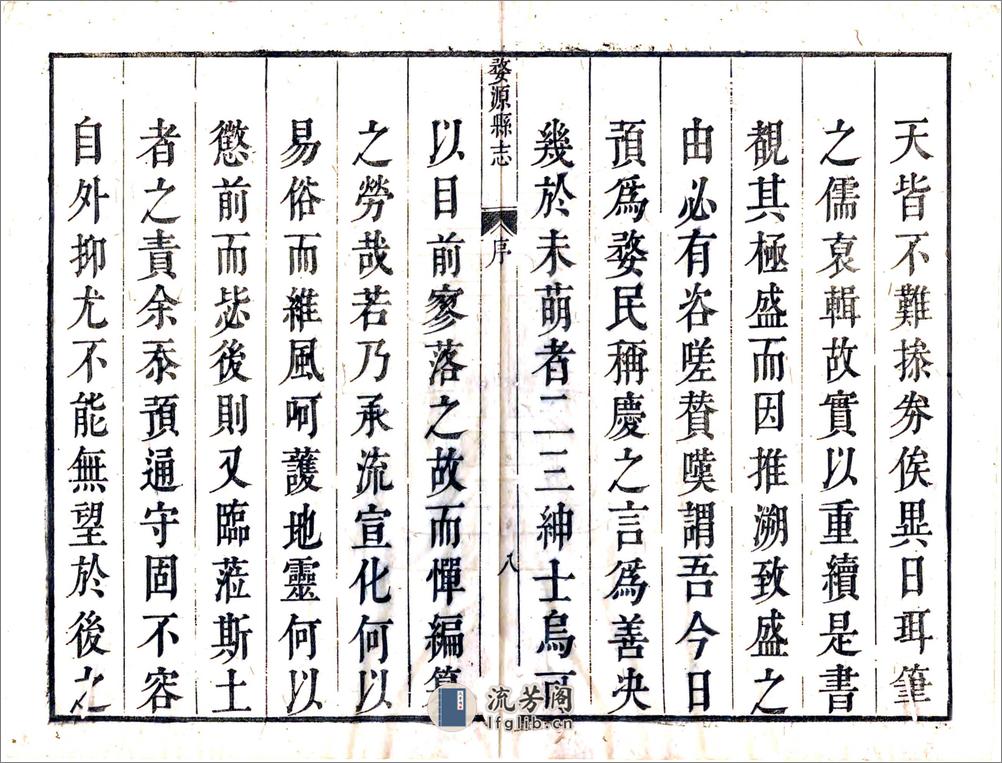 天皆不難操券俟異日珥筆
之儒裒輯故實以重續是書
覩其極盛而因推溯致盛之
由必有咨嗟贊嘆謂吾今日
預爲婺民稱慶之言爲善决
婺源縣志
序
八
幾於未萌者二三紳士烏可
以目前寥落之故而憚編
之勞哉若乃承流宣化何以
易俗而維風呵護地靈何以
懲前而毖後則又臨蒞斯土
者之責余忝預通守固不容
自外抑尤不能無望於後之
流芳阁
lfglib.cn